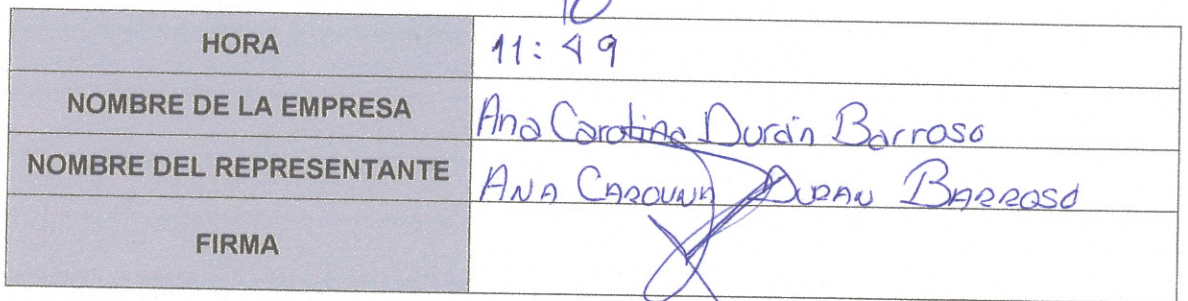 HORA 11:49
NOMBRE DE LA EMPRESA Ana Carolina Durán Barroso
NOMBRE DEL REPRESENTANTE ANA CAROLINA DURAN BARROSO
FIRMA